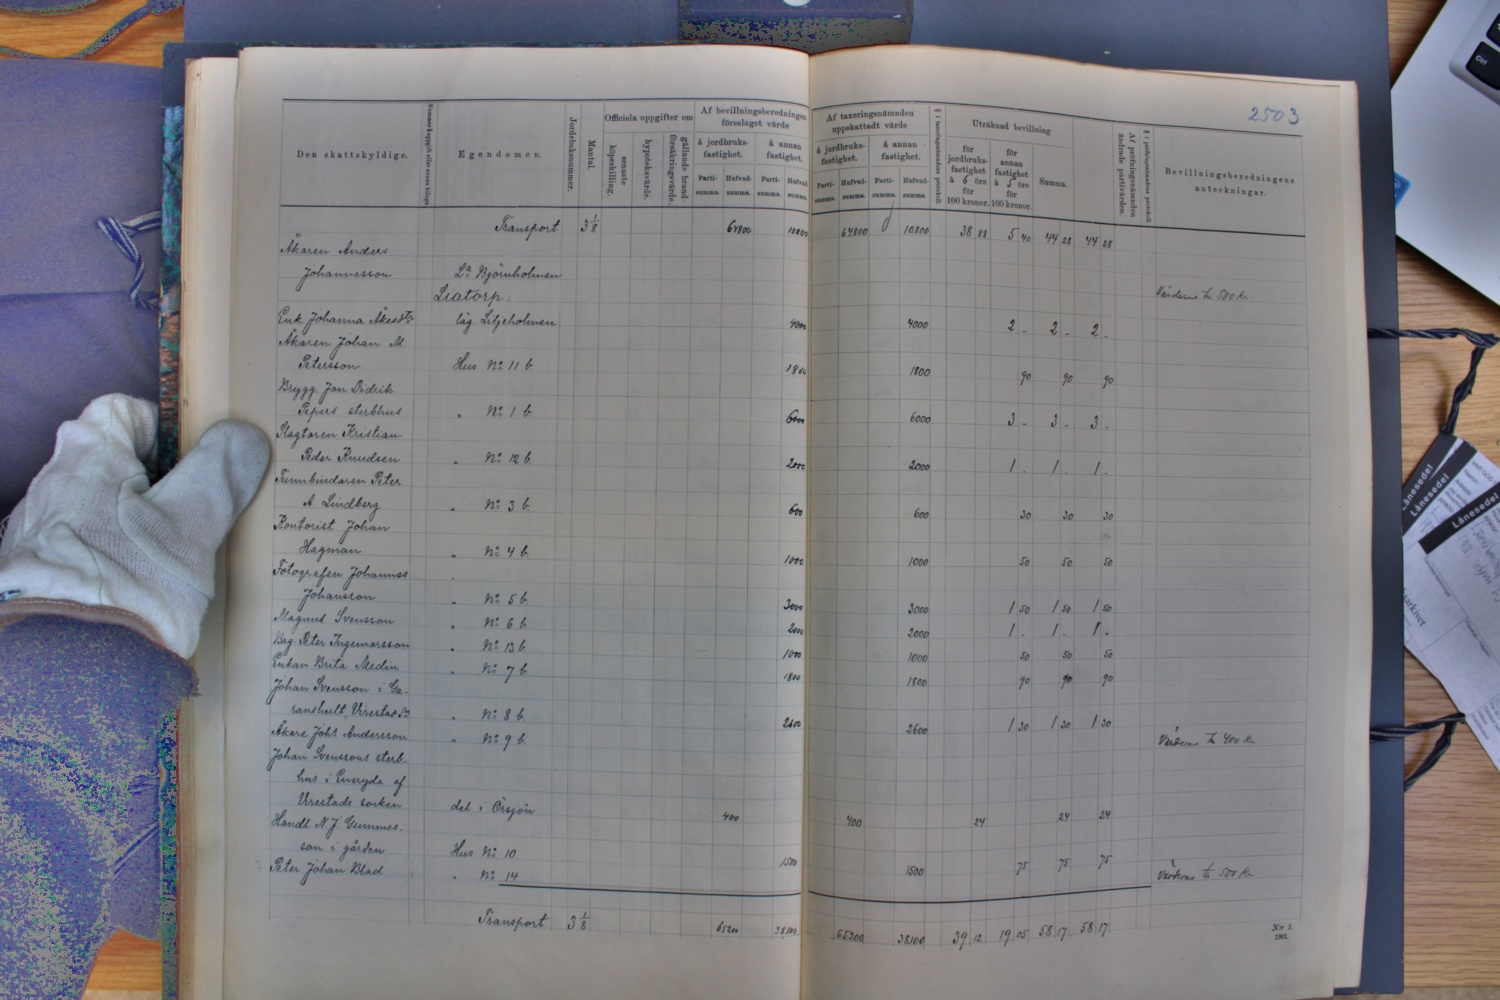 2503
Den skattskyldige.
Egendomen.
Jordeboksnummer.
Mantal.
Officiela uppgifter om
senaste köpeskilling.
hypoteksvärde.
gällande brandförsäkringsvärde.
Af bevillningsberedningen föreslaget värde
å jordbruksfastighet. å annan fastighet.
Partisumma. Hufvudsumma. Partisumma. Hufvudsumma.
Af taxeringsnämnden uppskattadt värde
å jordbruksfastighet. å annan fastighet.
Partisumma. Hufvudsumma. Partisumma. Hufvudsumma.
§ i taxeringsnämndens protokoll.
Uträknad bevillning
för jordbruksfastighet à 6 öre för 100 kronor.
för annan fastighet à 5 öre för 100 kronor.
Summa.
Af pröfningsnämnden ändrade partivärden.
§ i pröfningsnämndens protokoll.
Bevillningsberedningens anteckningar.
Transport 3 1/8 64800 10800 64800 10800 38 88 5 40 44 28 44 28
Åkaren Anders
Johannesson La Björnholmen
Liatorp: Värderas t. 500 kr
Enk. Johanna Åkesdtr läg. Liljeholmen 4000 4000 2 - 2 - 2 -
Åkaren Johan M
Petersson Hus No 11 b. 1800 1800 90 90 90
Brygg. Jon Didrik
Pipers sterbhus " No 1 b 6000 6000 3 - 3 - 3 -
Slagtaren Kristian
Peder Knudsen " No 12 b 2000 2000 1 - 1 - 1 -
Tunnbindaren Peter
A. Lindberg " No 3 b. 600 600 30 30 30
Kontorist Johan
Hagman " No 4 b. 1000 1000 50 50 50
Fotografen Johannes
Johansson " No 5 b. 3000 3000 1 50 1 50 1 50
Magnus Svensson " No 6 b. 2000 2000 1 - 1 - 1 -
Bag. Peter Ingemarsson " No 13 b. 1000 1000 50 50 50
Enkan Brita Medin " No 7 b 1800 1800 90 90 90
Johan Svensson i Ga-
ranshult, Virestads sn " No 8 b. 2600 2600 1 30 1 30 1 30
Åkare Johs Andersson " No 9 b. Värderas t. 400 kr.
Johan Svenssons sterb-
hus i Eneryda af
Virestads socken del i Örsjön 400 400 24 24 24
Handl. N. J. Gummes-
son i gården Hus No 10 1500 1500 75 75 75
Peter Johan Blad " No 14 Värderas t. 500 kr
Transport 3 1/8 65200 38100 65200 38100 39 12 19 05 58 17 58 17
N:r 1.
1901.
Lånesedel
Lånesedel
Ctrl